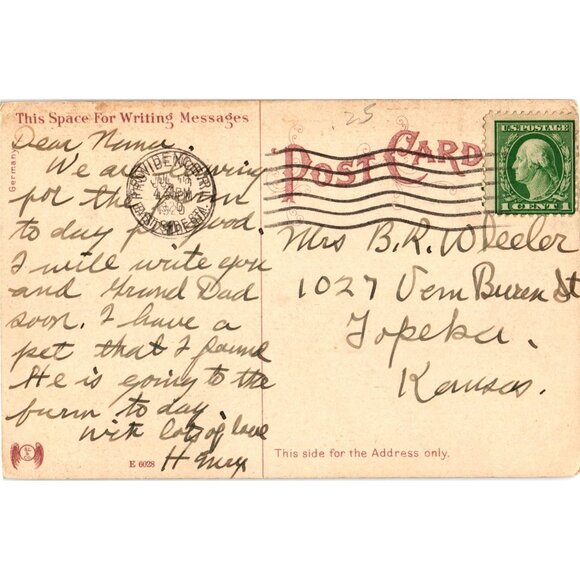 This Space For Writing Messages
Germany
Dear Nana,
We are
for the
to day for good.
I will write you
and Grand Dad
soon. I have a
pet that I found
He is going to the
farm to day.
with lots of love
E 6028
POST CARD
25
U.S. POSTAGE
1 CENT 1
PROVIDENCE, R.I.
1920
Mrs B. R. Wheeler
1027 Vern Buren St
Topeka,
Kansas.
This side for the Address only.